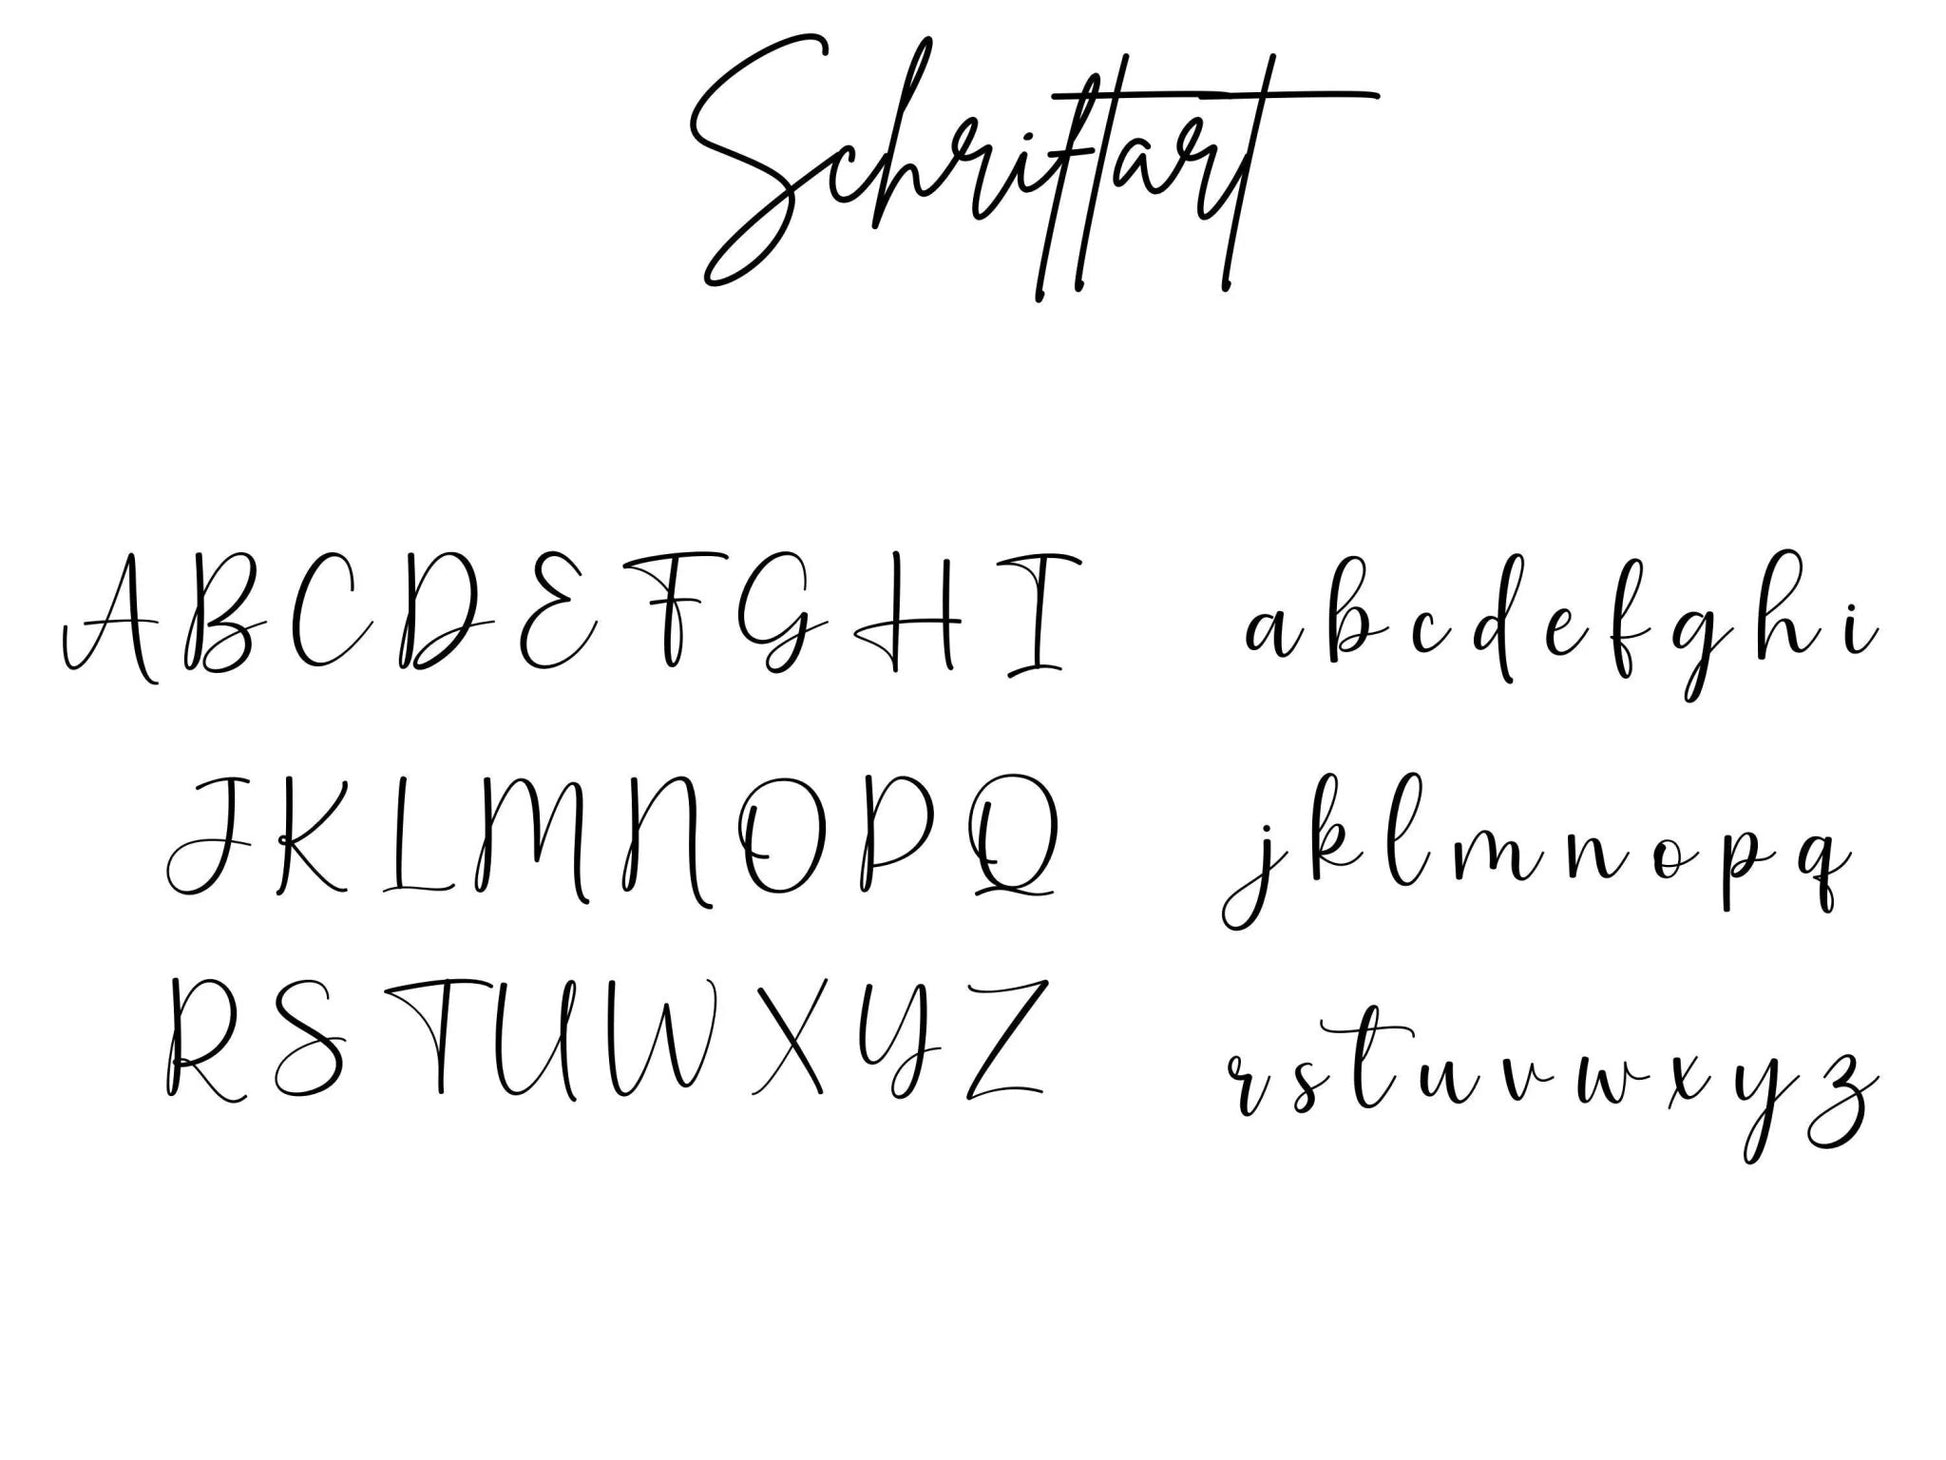 Schriftart
A B C D E F G H I a b c d e f g h i
J K L M N O P Q j k l m n o p q
R S T U W X Y Z r s t u v w x y z